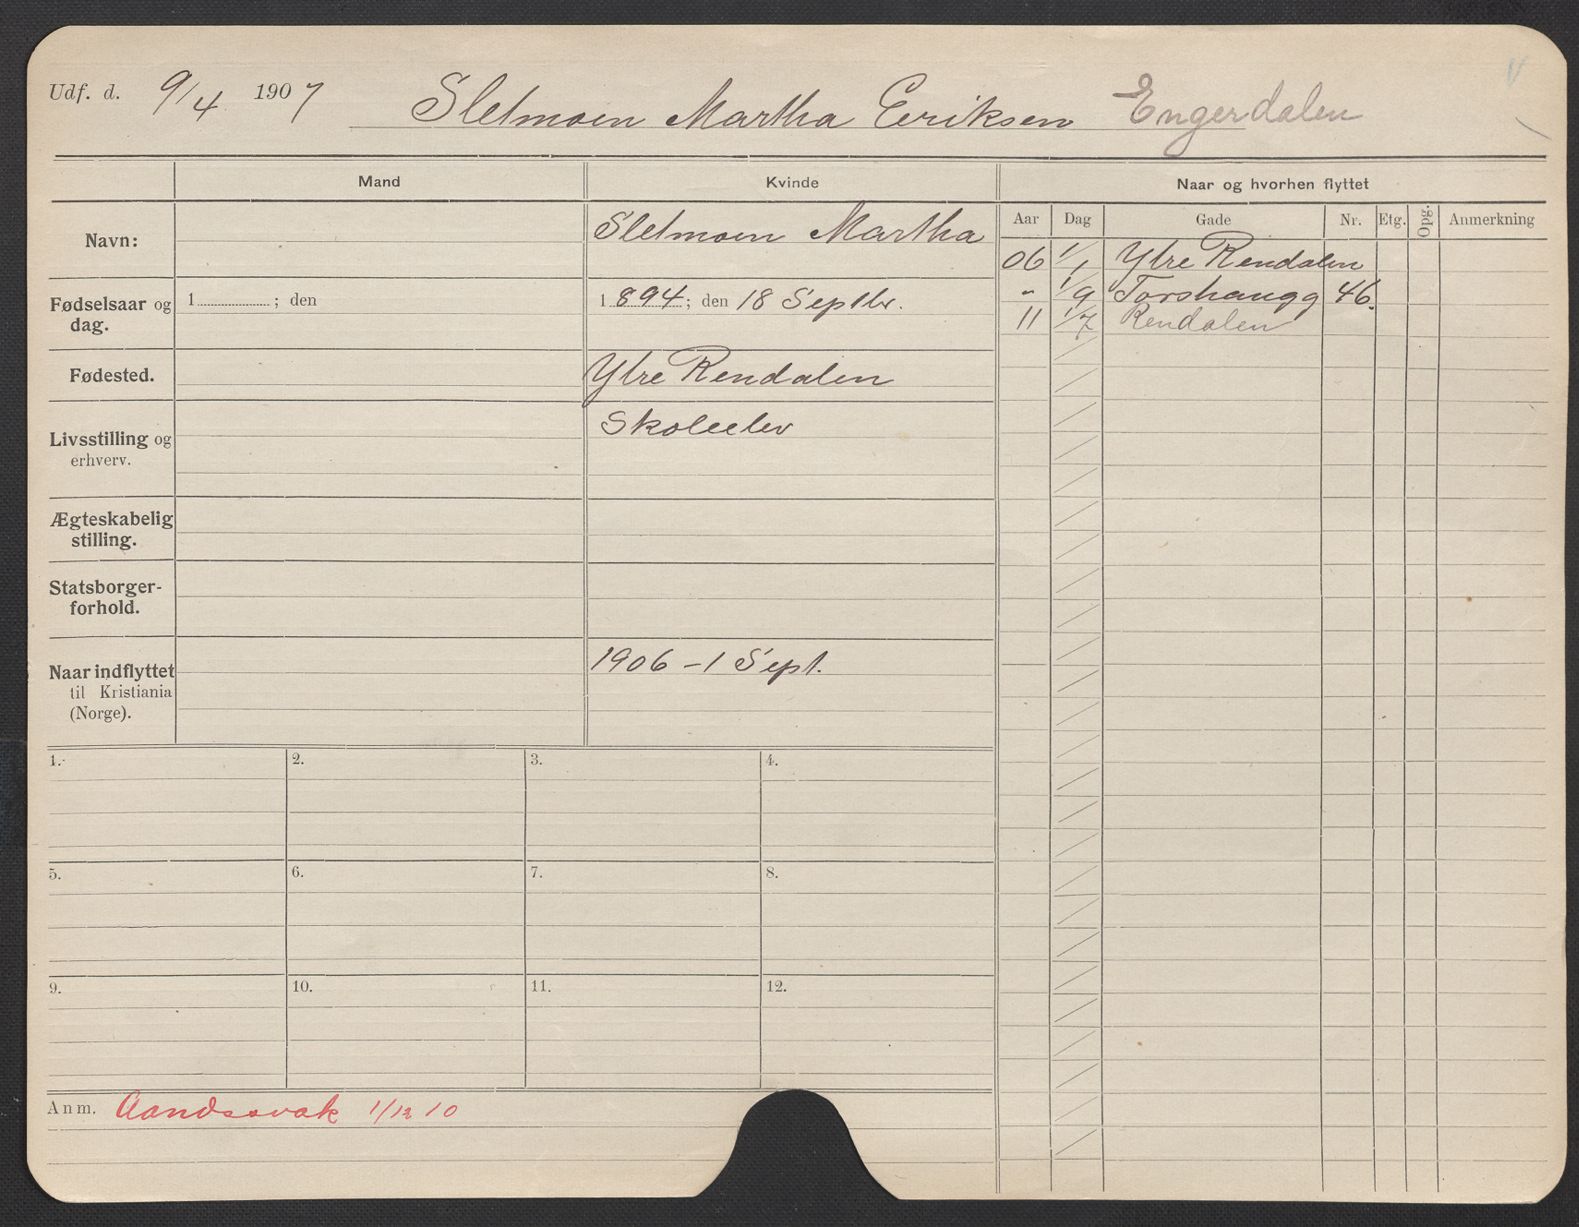 Udf. d. 9/4 1907 Sletmoen Martha Eeriksen Engerdalen
Mand Kvinde Naar og hvorhen flyttet
Aar Dag Gade Nr. Etg. Opg. Anmerkning
Navn: Sletmoen Martha
06 1/1 Ytre Rendalen
" 1/9 Torshaugg 46.
11 1/7 Rendalen
Fødselsaar og dag. 1 ; den 1894; den 18 Septbr.
Fødested. Ytre Rendalen
Livsstilling og erhverv. Skoleelev
Ægteskabelig stilling.
Statsborger-
forhold.
Naar indflyttet 1906 - 1 Sept.
til Kristiania
(Norge).
1. 2. 3. 4.
5. 6. 7. 8.
9. 10. 11. 12.
Anm. Aandssvak 1/12 10